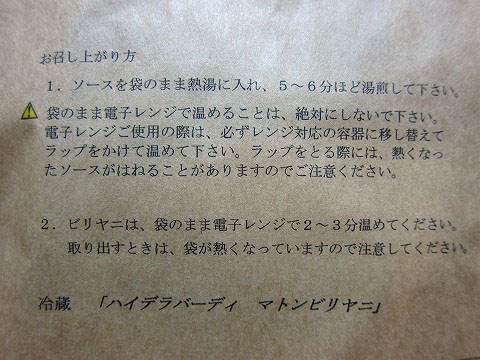 お召し上がり方
1．ソースを袋のまま熱湯に入れ、5～6分ほど湯煎して下さい。
袋のまま電子レンジで温めることは、絶対にしないで下さい。
電子レンジご使用の際は、必ずレンジ対応の容器に移し替えて
ラップをかけて温めて下さい。ラップをとる際には、熱くなっ
たソースがはねることがありますのでご注意ください。
2．ビリヤニは、袋のまま電子レンジで2～3分温めてください。
取り出すときは、袋が熱くなっていますので注意してください。
冷蔵 「ハイデラバーディ マトンビリヤニ」